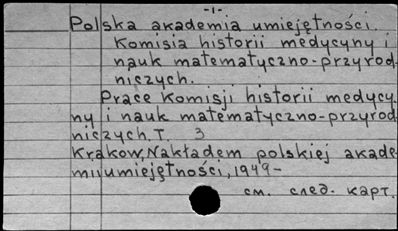 -1-
Polska akademia umiejętności.
Komisia historii medycyny i
nauk matematyczno-przyrod-
niczych.
Prace Komisji historii medycy-
ny i nauk matematyczno-przyrod-
niczych. T. 3
Krakow, Nakładem polskiej akade-
mii umiejętności, 1949-
см. след. карт.